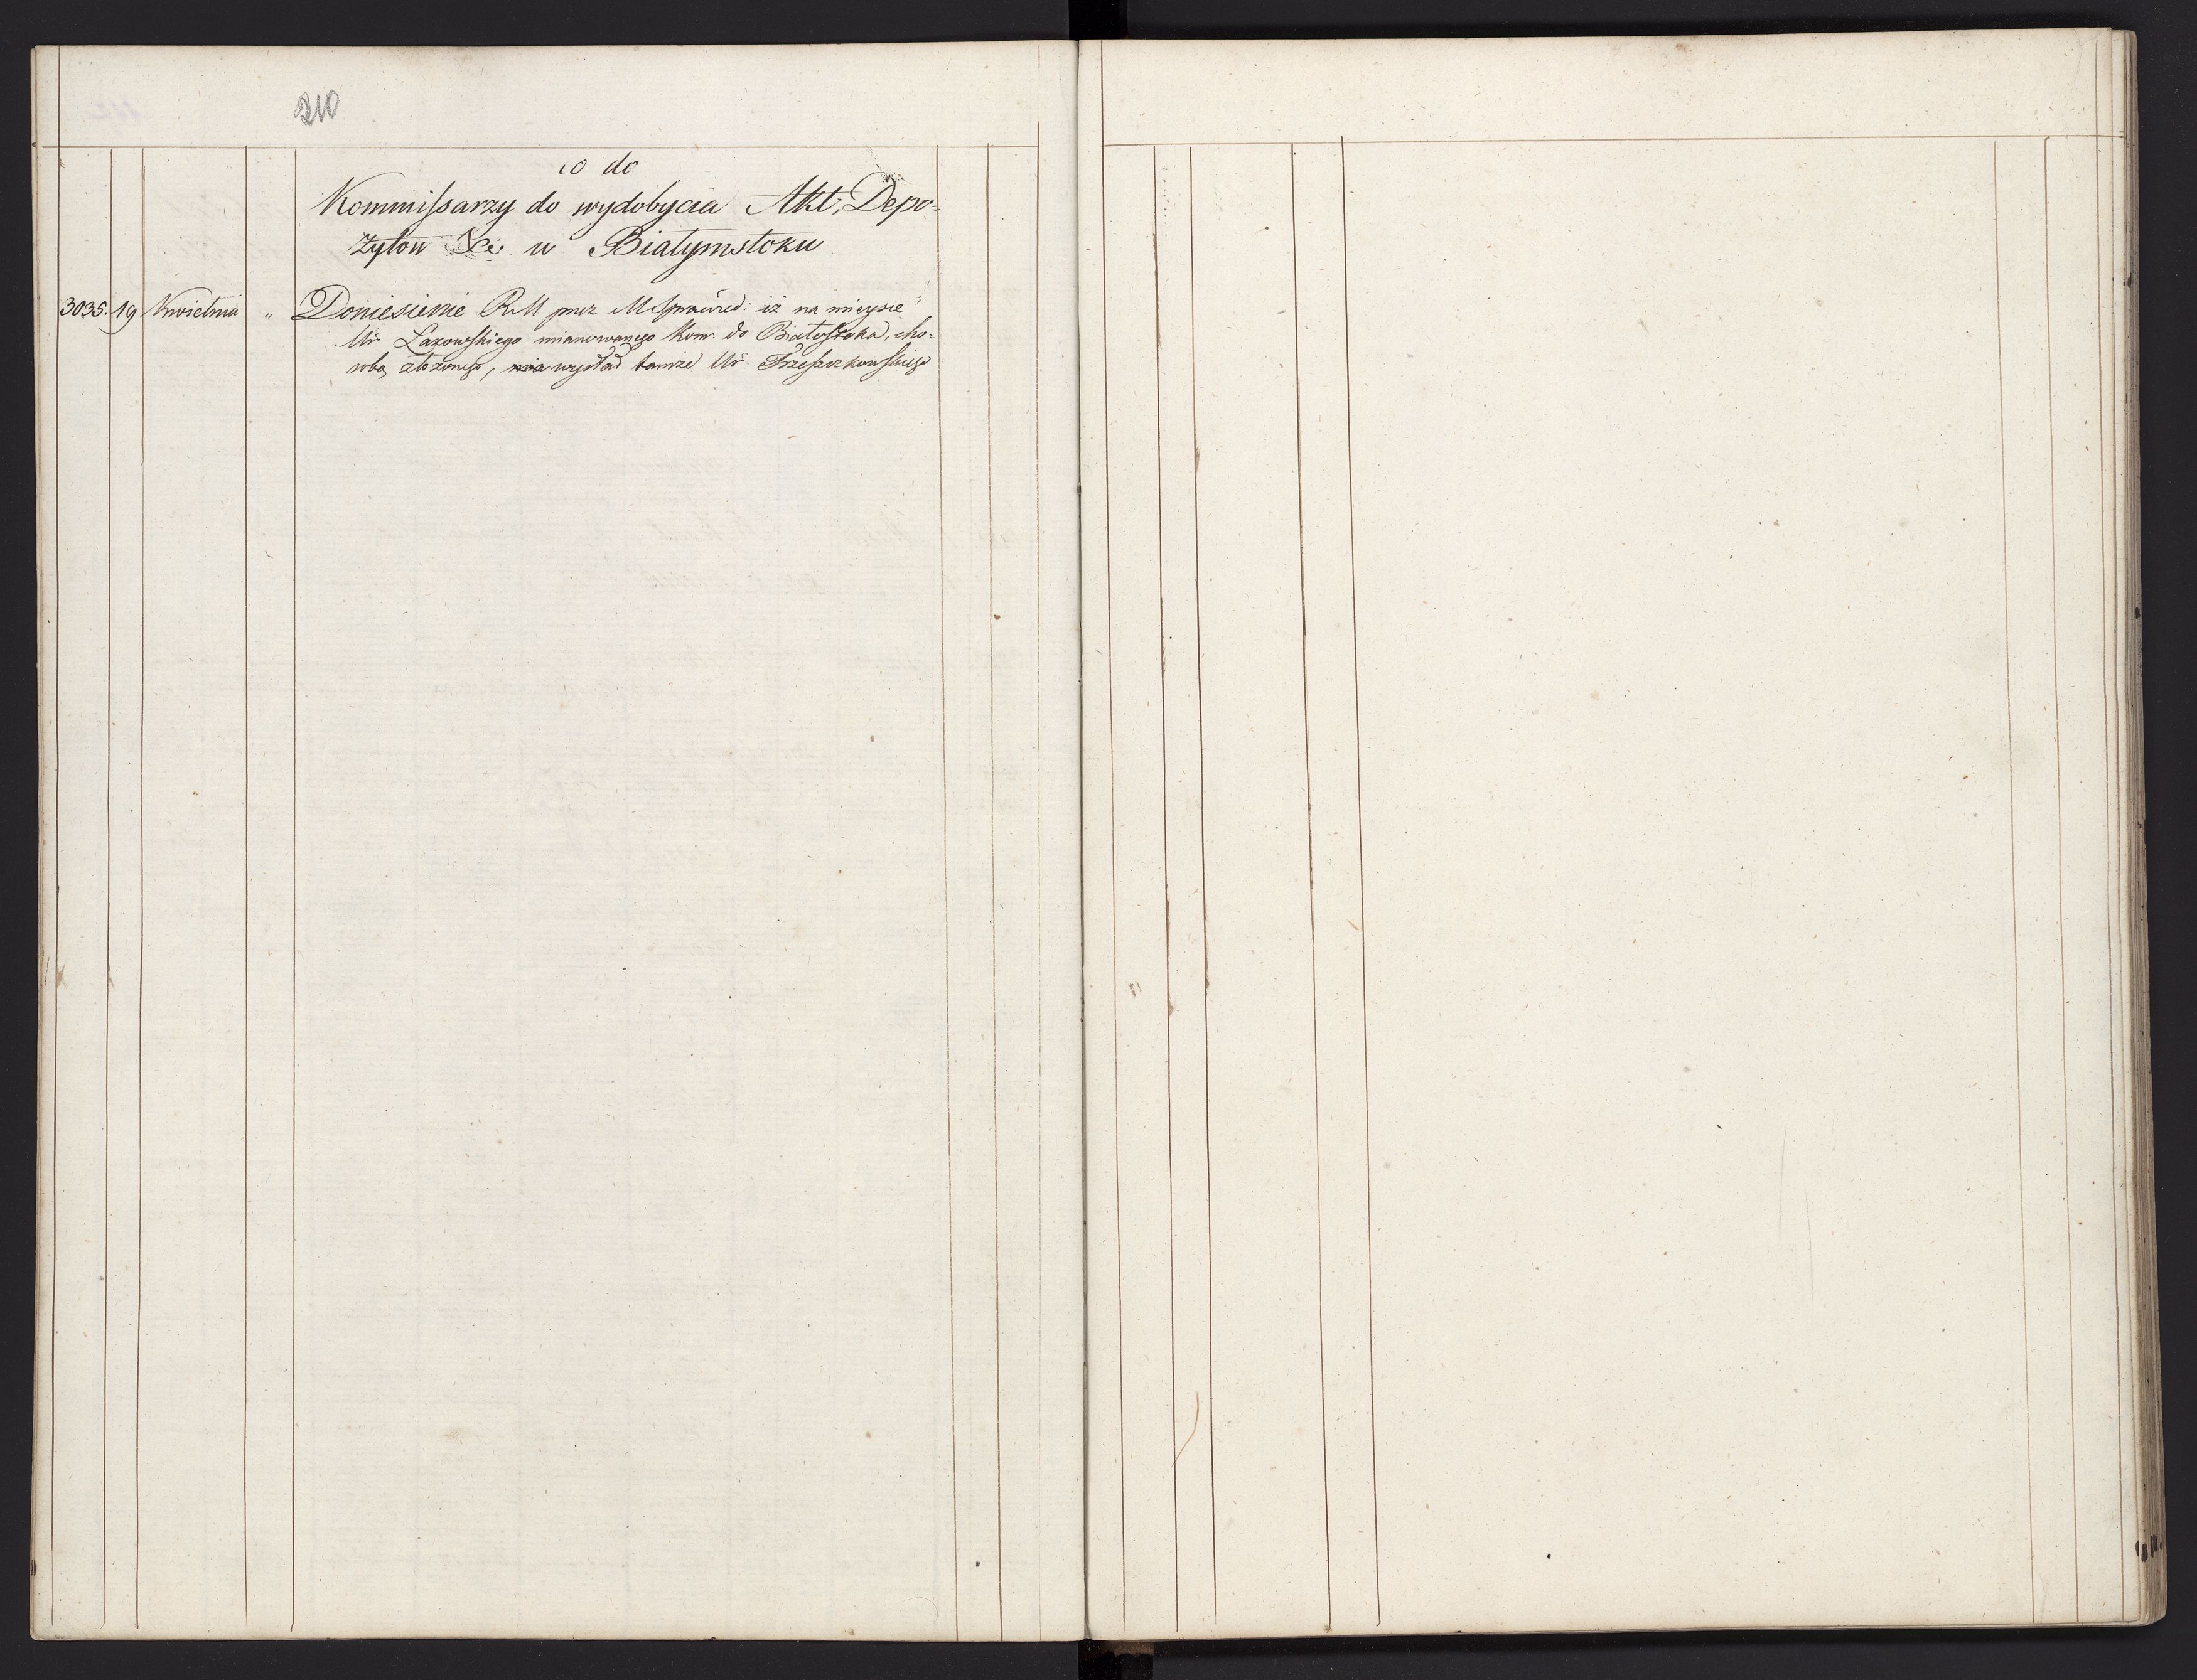 210
co do
Kommissarzy do wydobycia Akt, Depo=
zytow &c. w Białymstoku
3035. 19 Kwietnia " Doniesienie R. M przez M Sprawied: iż na mieysce
Ur Lazowskiego mianowanego Kom. do Białostoka, cho=
robą złożonego, wysłał tamże Ur Trzeszczkowskiego